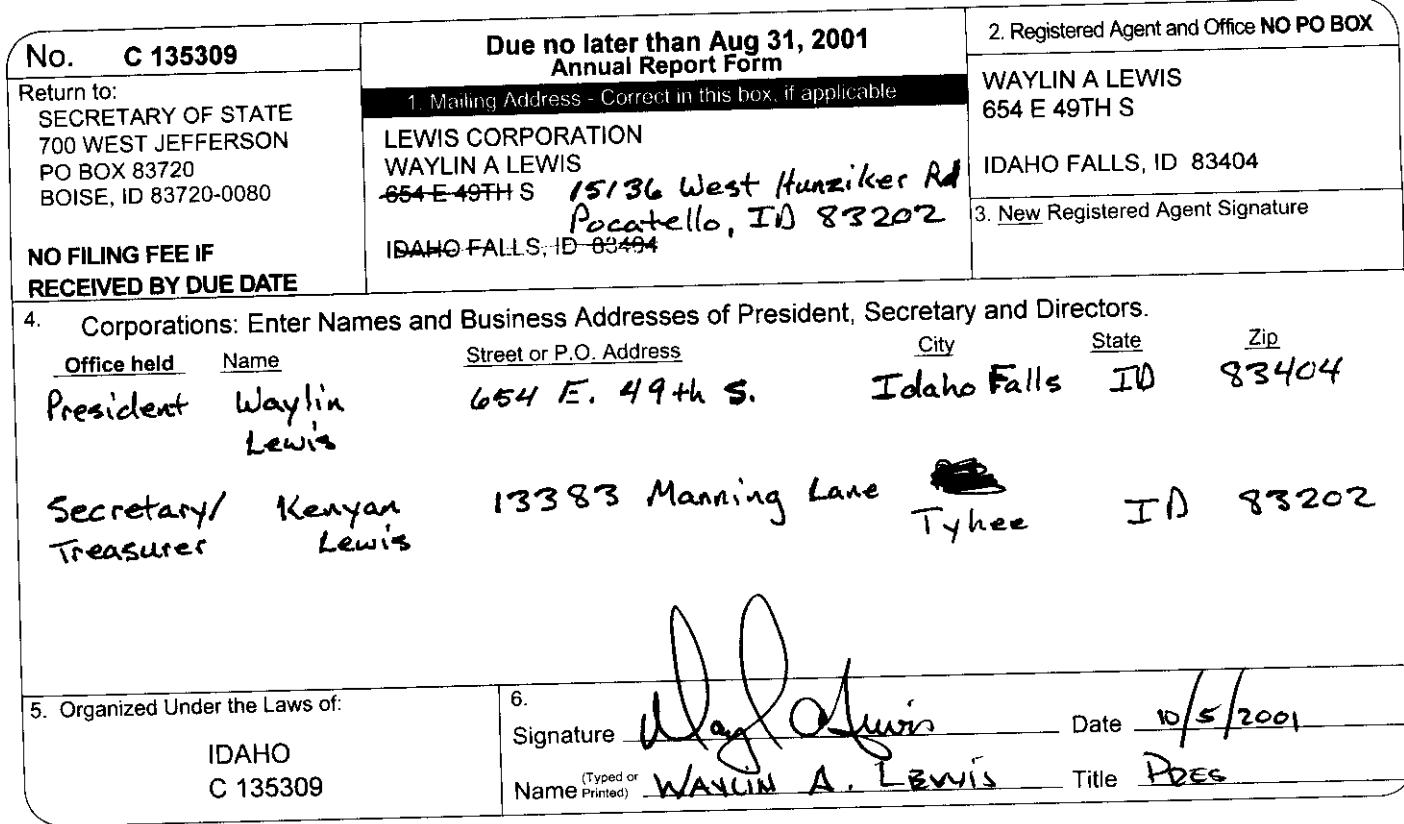 No. C 135309
Return to:
SECRETARY OF STATE
700 WEST JEFFERSON
PO BOX 83720
BOISE, ID 83720-0080
NO FILING FEE IF
RECEIVED BY DUE DATE
Due no later than Aug 31, 2001
Annual Report Form
1. Mailing Address - Correct in this box, if applicable
LEWIS CORPORATION
WAYLIN A LEWIS
654 E 49TH S 15136 West Hunziker Rd
Pocatello, ID 83202
IDAHO FALLS, ID 83404
2. Registered Agent and Office NO PO BOX
WAYLIN A LEWIS
654 E 49TH S
IDAHO FALLS, ID 83404
3. New Registered Agent Signature
4. Corporations: Enter Names and Business Addresses of President, Secretary and Directors.
Office held Name Street or P.O. Address City State Zip
President Waylin 654 E. 49th S. Idaho Falls ID 83404
Lewis
Secretary/ Kenyan 13383 Manning Lane Tyhee ID 83202
Treasurer Lewis
5. Organized Under the Laws of:
IDAHO
C 135309
6.
Signature Wayl A Lewis Date 10/5/2001
Name (Typed or Printed) WAYLIN A. LEWIS Title PRES